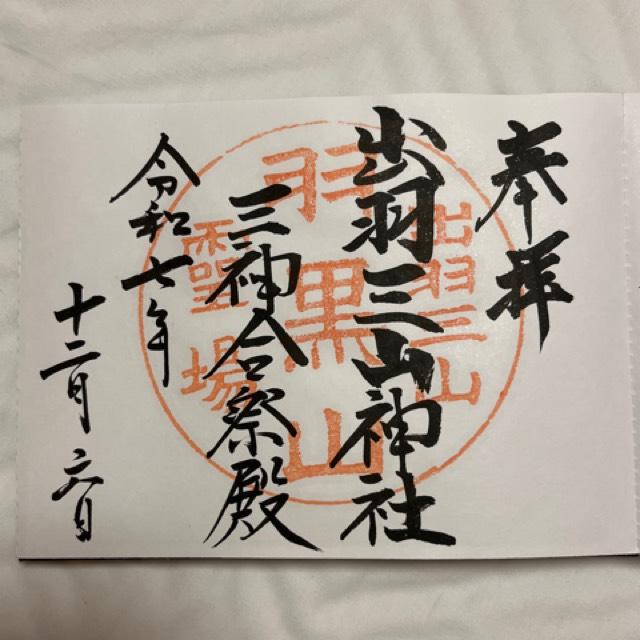 奉拝
出羽三山神社
三神合祭殿
令和七年
十二月六日
出羽三山
羽黒山
霊場